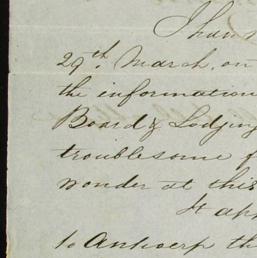 I han
29th March, on
the information
Board & Lodging
troublesome f
wonder at this
It app
to Antwerp th